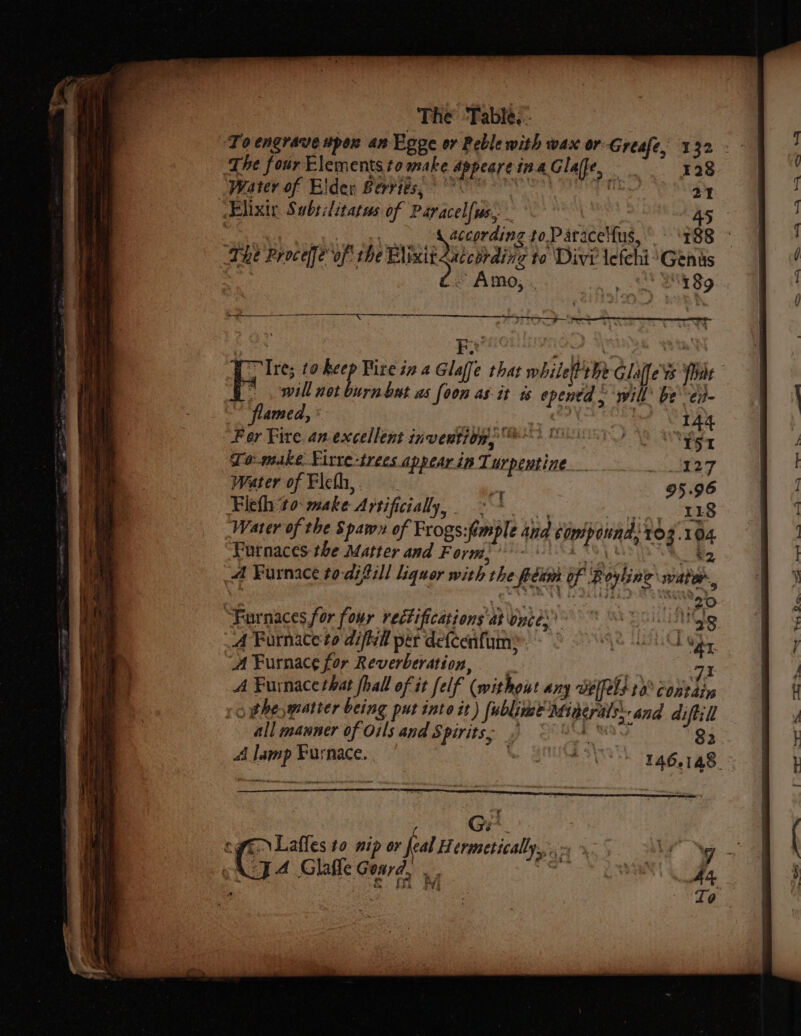 The Table.
To engrave upon an Egge or Peble with wax or Grease, 132
The four Elements to make appeare in a Glasse, 128
Water of Elder Berries, 21
Elixir Subtilitatus of Paracelsus, 45
according to Paracelsus, 188
The Processe of the Elixir according to Divi leschi Genus
Amo, 189
F.
FIre; to keep Fire in a Glasse that whilest the Glasse is shut
will not burn but as soon as it is opened, will be en-
flamed, 144
For Fire an excellent invention, 151
To make Firre-trees appear in Turpentine 127
Water of Flesh, 95.96
Flesh to make Artificially, 118
Water of the Spawn of Frogs: simple and compound, 103.104
Furnaces the Matter and Form,
A Furnace to distill liquor with the steam of Boyling water,
20
Furnaces for four rectifications at once, 38
A Furnace to distill per descensum, 41
A Furnace for Reverberation, 71
A Furnace that shall of it self (without any vessels to contain
the matter being put into it) sublime Minerals, and distill
all manner of Oils and Spirits, 82
A lamp Furnace. 146,148
G.
GLasses to nip or seal Hermetically, 7
A Glasse Gourd, 44
To